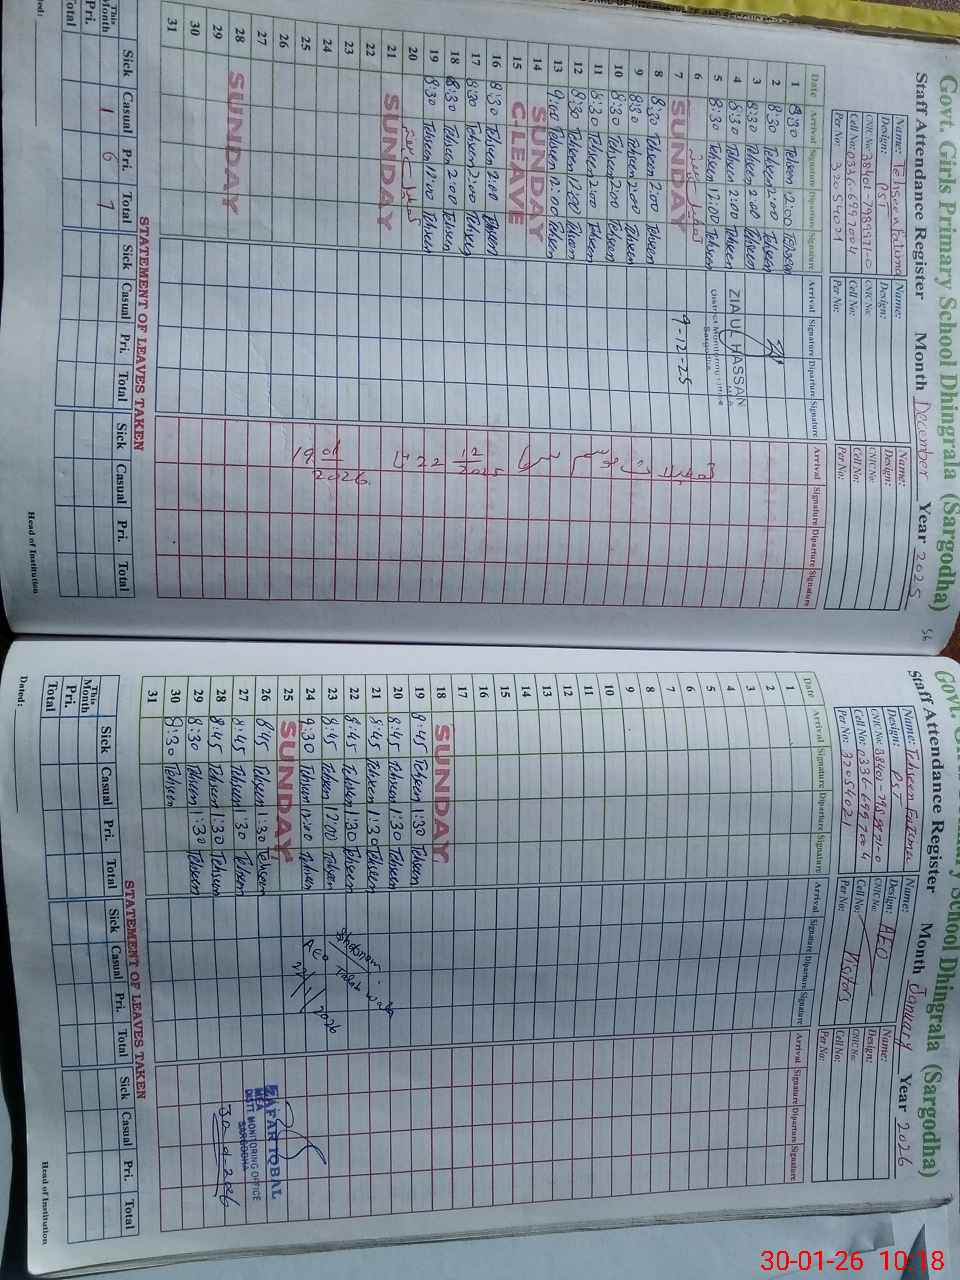 Govt. Girls Primary School Dhingrala (Sargodha)
Staff Attendance Register Month December Year 2025
Name: Tehseen Fatima Name: Name:
Design: PST Design: Design:
CNIC No: 38401-7989971-0 CNIC No: CNIC No:
Cell No: 0336-6997004 Cell No: Cell No:
Per No: 32054021 Per No: Per No:
Date Arrival Signature Diparture Signature Arrival Signature Diparture Signature Arrival Signature Diparture Signature
1 8:30 Tehseen 2:00 Tehseen
2 8:30 Tehseen 2:00 Tehseen
3 8:30 Tehseen 2:00 Tehseen
4 8:30 Tehseen 2:00 Tehseen ZIA UL HASSAN
5 8:30 Tehseen 12:00 Tehseen MEA District Monitoring Office
Sargodha
6
7 SUNDAY 9-12-25
8 8:30 Tehseen 2:00 Tehseen
9 8:30 Tehseen 2:00 Tehseen
10 8:30 Tehseen 2:00 Tehseen
11 8:30 Tehseen 2:00 Tehseen
12 8:30 Tehseen 12:00 Tehseen
13 9:00 Tehseen 12:00 Tehseen
14 SUNDAY
15 C LEAVE
16 8:30 Tehseen 2:00 Tehseen
17 8:30 Tehseen 2:00 Tehseen 12/2025
18 8:30 Tehseen 2:00 Tehseen
19 8:30 Tehseen 12:00 Tehseen 22
20
21 SUNDAY
22
23
24 01/2026
25 19
26
27
28 SUNDAY
29
30
31
STATEMENT OF LEAVES TAKEN
Sick Casual Pri. Total Sick Casual Pri. Total Sick Casual Pri. Total
This Month 1 6 7
Pri.
Total
Dated: Head of Institution
Govt. Girls Primary School Dhingrala (Sargodha)
Staff Attendance Register Month January Year 2026
Name: Tehseen Fatima Name: Name:
Design: PST Design: AEO Design:
CNIC No: 38401-7989971-0 CNIC No: CNIC No:
Cell No: 0336-6997004 Cell No: Cell No:
Per No: 32054021 Per No: Visitors Per No:
Date Arrival Signature Diparture Signature Arrival Signature Diparture Signature Arrival Signature Diparture Signature
1
2
3
4
5
6
7
8
9
10
11
12
13
14
15
16
17
18 SUNDAY
19 8:45 Tehseen 1:30 Tehseen
20 8:45 Tehseen 1:30 Tehseen
21 8:45 Tehseen 1:30 Tehseen
22 8:45 Tehseen 1:30 Tehseen Shabnam
23 8:45 Tehseen 12:00 Tehseen
24 9:30 Tehseen 12:00 Tehseen AEO 2026
25 SUNDAY
26 8:45 Tehseen 1:30 Tehseen ZAFAR IQBAL
MEA
27 8:45 Tehseen 1:30 Tehseen DISTT MONITORING OFFICE
SARGODHA
28 8:45 Tehseen 1:30 Tehseen 30-01-2026
29 8:30 Tehseen 1:30 Tehseen
30 8:30 Tehseen
31
STATEMENT OF LEAVES TAKEN
Sick Casual Pri. Total Sick Casual Pri. Total Sick Casual Pri. Total
This Month
Pri.
Total
Dated: Head of Institution
30-01-26 10:18